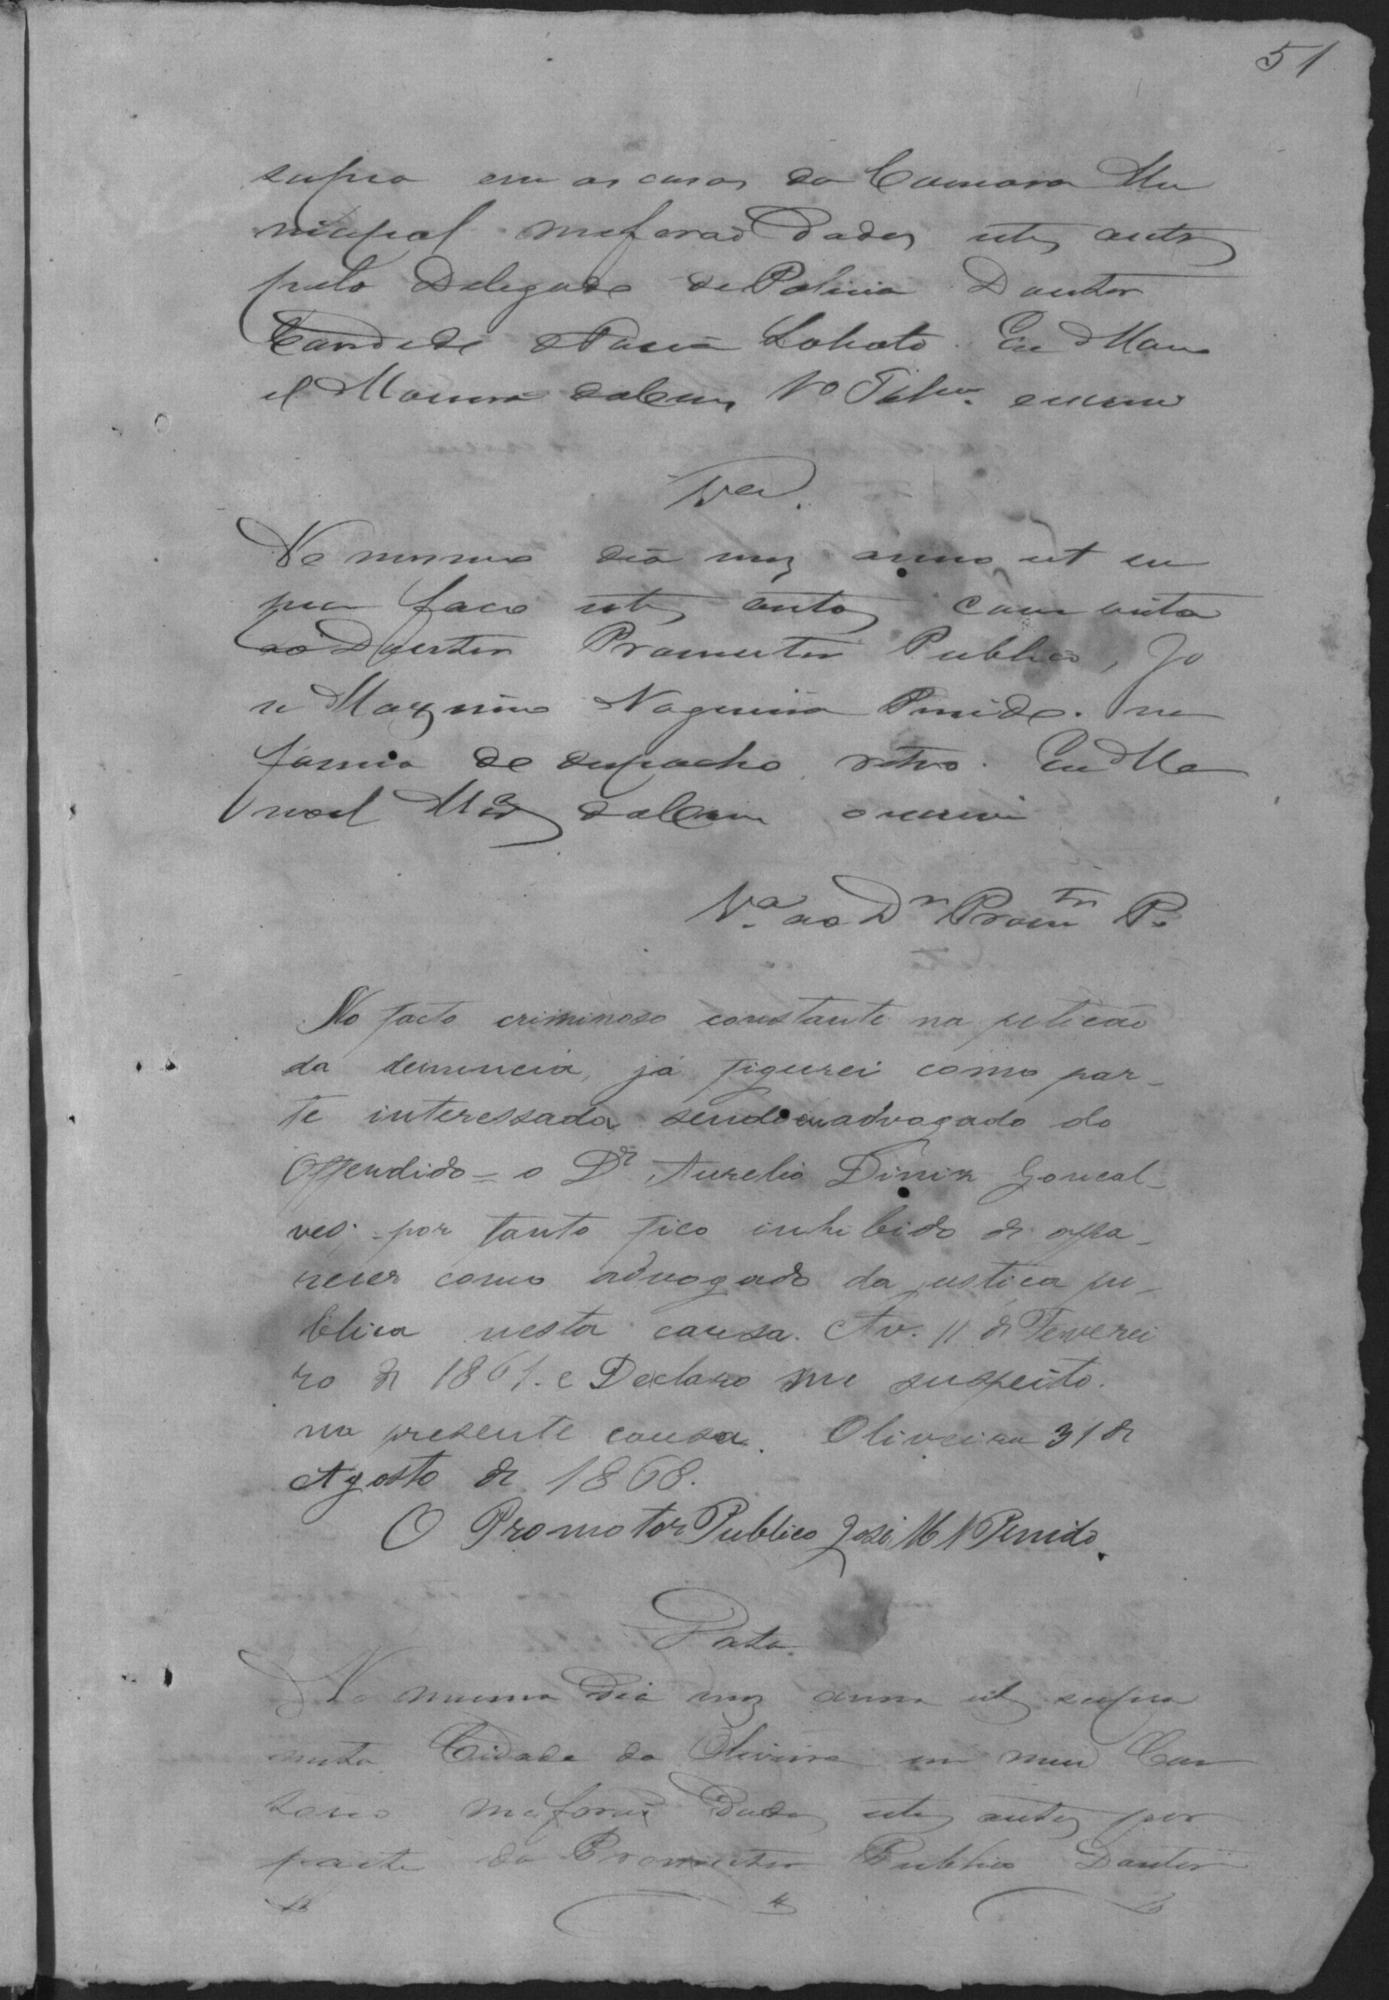 51
supra em as casas da Camara Mu
nicipal me forão dados estes autos
pelo Delegado de Policia Doutor
Candido Faria Lobato. Eu Mano
el
V.ta
No mesmo dia mez anno ut su
pra faço estes autos com vista
ao Doutor Promotor Publico, Jo
se Maximo Nogueira Penido. na
forma do despacho retro. Eu Ma
noel escrevi
V.a ao Dr Promtor P.
No facto criminoso constante na petição
da denuncia, já figurei como par-
te interessada sendo eu advogado do
Offendido = o Dr Aurelio Diniz Goncal-
ves - por tanto fico inhibido de offe-
recer como advogado da justiça pu-
blica nesta causa. Av. 11 de Feverei
ro de 1861. e Declaro me suspeito.
na presente causa. Oliveira 31 de
Agosto de 1868.
O Promotor Publico José M N Penido.
Data.
No mesmo dia mez anno ut supra
nesta Cidade da Oliveira em meu Car
torio me forão dados estes autos por
parte do Promotor Publico Doutor